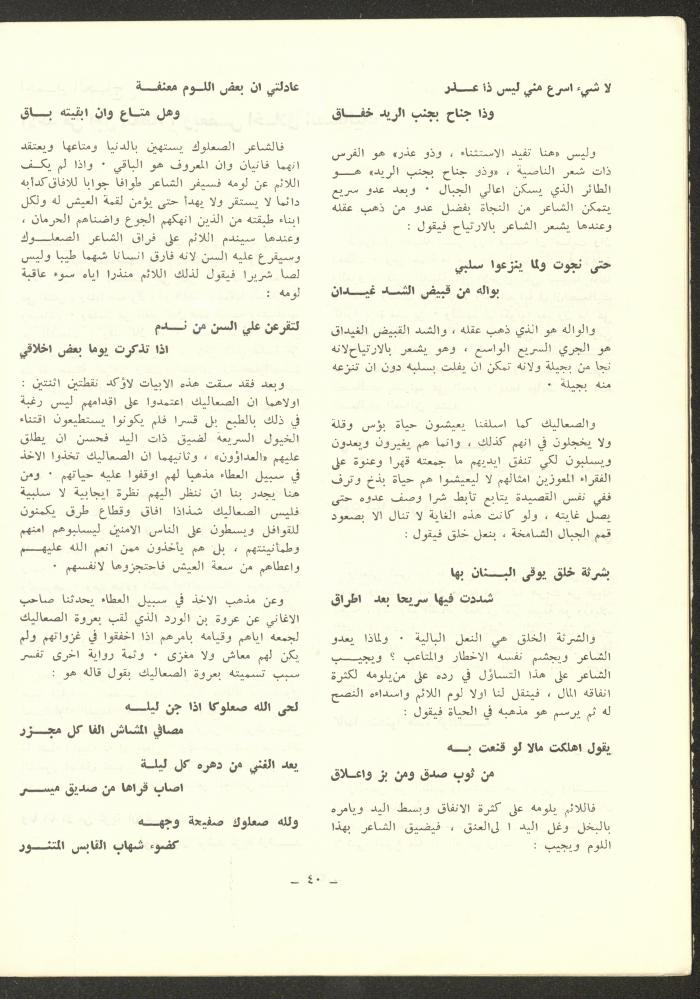 لا شيء اسرع مني ليس ذا عـــذر
وذا جناح بجنب الريد خفـــاق
وليس «هنا تفيد الاستثناء ، وذو عذر» هو الفرس
ذات شعر الناصية ، «وذو جناح بجنب الريد» هـــو
الطائر الذي يسكن اعالي الجبال ٠ وبعد عدو سريع
يتمكن الشاعر من النجاة بفضل عدو من ذهب عقله
وعندها يشعر الشاعر بالارتياح فيقول :
حتى نجوت ولما ينزعوا سلبي
بواله من قبيض الشـد غيـدان
والواله هو الذي ذهب عقله ، والشد القبيض الغيداق
هو الجري السريع الواسع ، وهو يشعر بالارتياح لانه
نجا من بجيلة ولانه تمكن ان يفلت بسلبه دون ان تنزعه
منه بجيلة ٠
والصعاليك كما اسلفنا يعيشون حياة بؤس وقلة
ولا يخجلون في انهم كذلك ، وانما هم يغيرون ويعدون
ويسلبون لكي تنفق ايديهم ما جمعته قهرا وعنوة على
الفقراء المعوزين امثالهم لا ليعيشوا هم حياة بذخ وترف
ففي نفس القصيدة يتابع تأبط شرا وصف عدوه حتى
يصل غايته ، ولو كانت هذه الغاية لا تنال الا بصعود
قمم الجبال الشامخة ، بنعل خلق فيقول :
بشرثة خلق يوقى البـــنان بها
شددت فيها سريحا بعد اطراق
والشرثة الخلق هي النعل البالية ٠ ولماذا يعدو
الشاعر ويجشم نفسه الاخطار والمتاعب ؟ ويجيـــب
الشاعر على هذا التساؤل في رده على من يلومه لكثرة
انفاقه المال ، فينقل لنا اولا لوم اللائم واسداءه النصح
له ثم يرسم هو مذهبه في الحياة فيقول :
يقول اهلكت مالا لو قنعت بـــه
من ثوب صدق ومن بز واعـلاق
فاللائم يلومه على كثرة الانفاق وبسط اليد ويامره
بالبخل وغل اليد ا لى العنق ، فيضيق الشاعر بهذا
اللوم ويجيب :
عاذلتي ان بعض اللـوم معنفـــة
وهل متـاع وان ابقيته بـــاق
فالشاعر الصعلوك يستهين بالدنيا ومتاعها ويعتقد
انهما فانيان وان المعروف هو الباقي ٠ واذا لم يكــف
اللائم عن لومه فسيفر الشاعر طوافا جوابا للافاق كدأبه
دائما لا يستقر ولا يهدأ حتى يؤمن لقمة العيش له ولكل
ابناء طبقته من الذين انهكهم الجوع واضناهم الحرمان ،
وعندها سيندم اللائم على فراق الشاعر الصعلـــوك
وسيقرع عليه السن لانه فارق انسانا شهما طيبا وليس
لصا شريرا فيقول لذلك اللائم منذرا اياه سوء عاقبة
لومه :
لتقرعن علي السن من نـــدم
اذا تذكرت يوما بعض اخلاقي
وبعد فقد سقت هذه الابيات لاؤكد نقطتين اثنتين :
اولاهما ان الصعاليك اعتمدوا على اقدامهم ليس رغبة
في ذلك بالطبع بل قسرا فلم يكونوا يستطيعون اقتناء
الخيول السريعة لضيق ذات اليد فحسن ان يطلق
عليهم «العداؤون» ، وثانيهما ان الصعاليك تخذوا الاخذ
في سبيل العطاء مذهبا لهم اوقفوا عليه حياتهم ٠ ومن
هنا يجدر بنا ان ننظر اليهم نظرة ايجابية لا سلبية
فليس الصعاليك شذاذا افاق وقطاع طرق يكمنون
للقوافل ويسطون على الناس الامنين ليسلبوهم امنهم
وطمأنينتهم ، بل هم يأخذون ممن انعم الله عليهـــم
واعطاهم من سعة العيش فاحتجزوها لانفسهم ٠
وعن مذهب الاخذ في سبيل العطاء يحدثنا صاحب
الاغاني عن عروة بن الورد الذي لقب بعروة الصعاليك
لجمعه اياهم وقيامه بامرهم اذا اخفقوا في غزواتهم ولم
يكن لهم معاش ولا مغزى ٠ وثمة رواية اخرى تفسر
سبب تسميته بعروة الصعاليك بقول قاله هو :
لحى الله صعلوكا اذا جن ليلـــه
مصافي المشاش الفا كل مجـــزر
يعد الغني من دهره كل ليلـــة
اصاب قراها من صديق ميســـر
ولله صعلوك صفيحة وجهـــه
كضوء شهاب القابس المتنـــور
ــ ٤٠ ــ